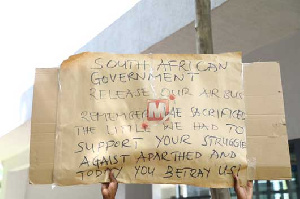 SOUTH AFRICAN
GOVERNMENT
RELEASE OUR AIR BUS
REMEMBER WE SACRIFICED
THE LITTLE WE HAD TO
SUPPORT YOUR STRUGGLE
AGAIST APARTHED AND
TODAY YOU BETRAY US!
M